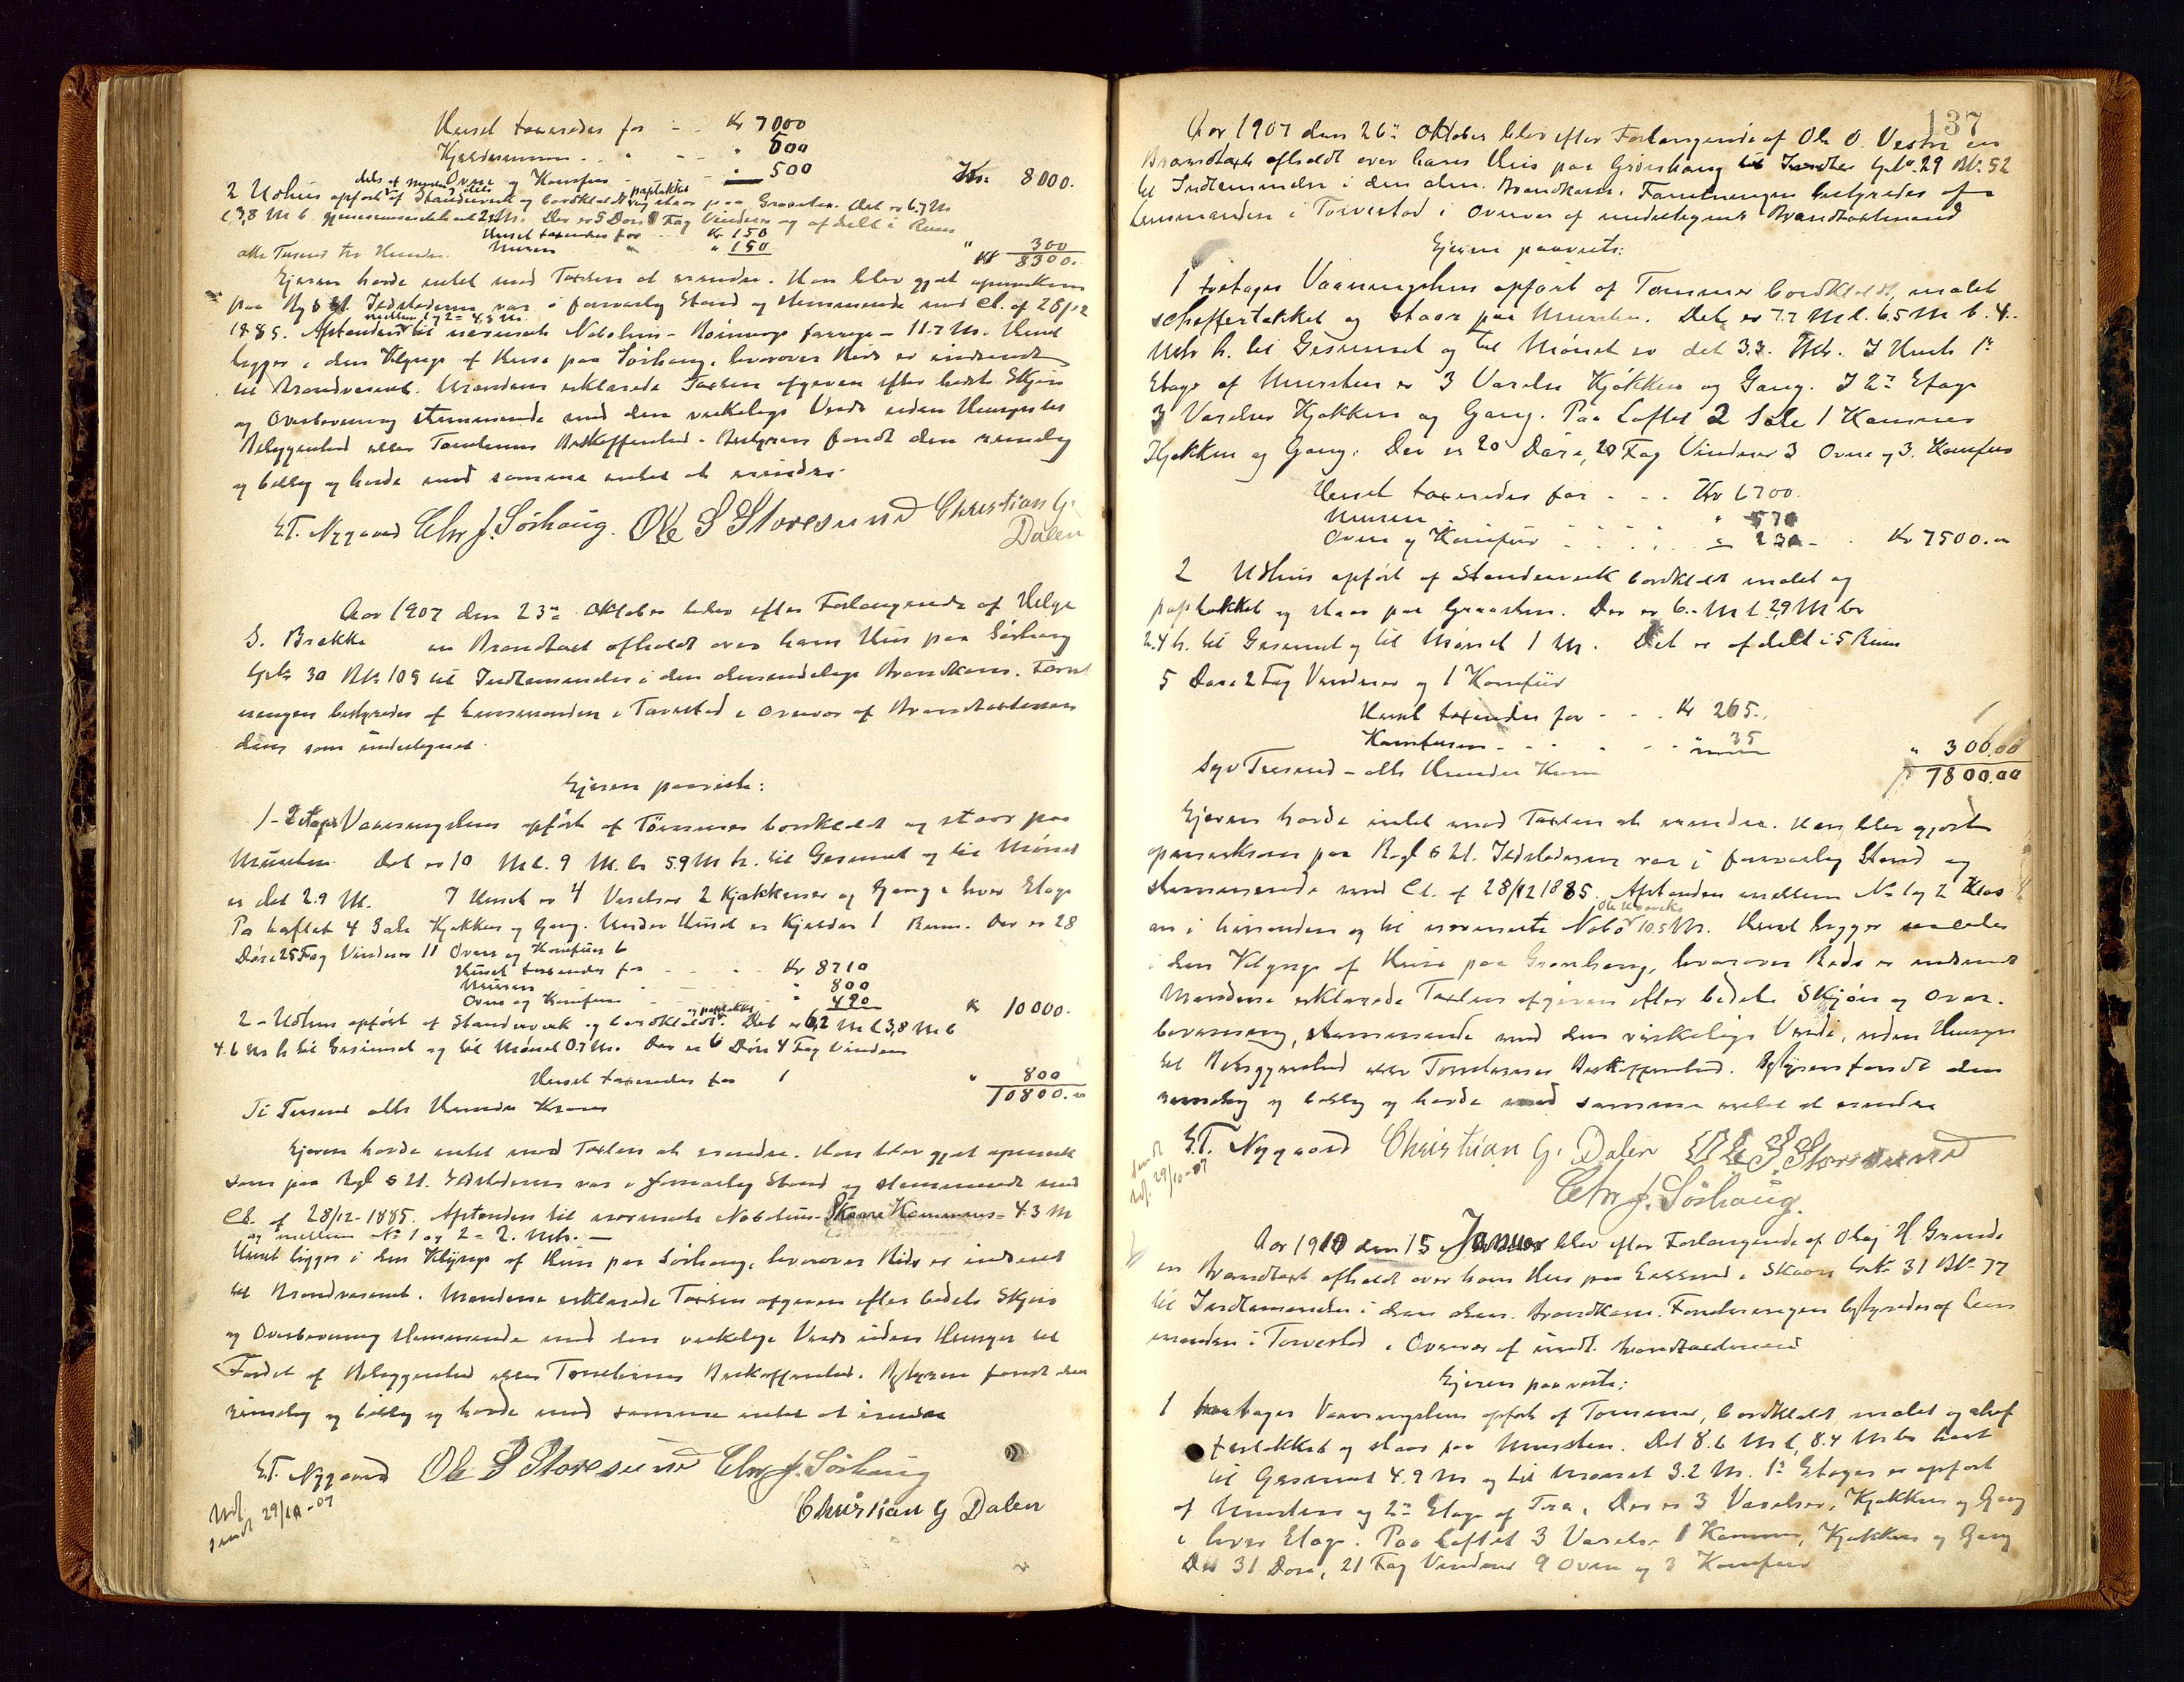 Huset taxeredes for - - Kr 7000
Kjelderenmuren - - " 500
Ovne og Komfur - - " 500 Kr. 8000.
2 Udhus opført dels af Muren dels af Standerverk og bordklædt paptækket og staar paa Graasten. Det er 6.7 M
l 3,8 M b gjennemsnitlig 2 M. Der er 5 Døre 1 Fag Vinduer og afdelt i Rum
Huset taxeredes for Kr 150
Muren " " 150 " 300
otte Tusend tre Hundre Kr 8300.
Ejeren havde intet mod Taxten at erindre. Han blev gjort opmerksom
paa Rgl § 21. Ildstederne var i forsvarlig Stand og stemmende med Cl. af 28/12
mellem 1 og 2 = 4,3 M.
1885. Afstanden til nærmeste Nabohus - Rønnevigs farveri - 11.7 M. Huset
ligger i den Klynge af Huse paa Sørhaug, hvorover Rids er indsendt
til Brandvæsenet. Mændene erklærede Taxten afgiven efter bedste Skjøn
og Overbevisning stemmende med den virkelige Værdi uden Hensyn til
Bebyggelsed eller Tomtens Beskaffenhed. Bestyreren fandt den rimelig
og billig og havde mod samme intet at erindre.
E.T. Nygaard Chr J. Sørhaug. Ole S Storesund Christian G.
Dalen
Aar 1907 den 23de Oktober blev efter Forlangende af Helge
S. Brekke en Brandtaxt afholdt over hans Hus paa Sørhaug
Gno 30 Bno 109 til Indlemmelse i den almindelige Brandkasse. Forret
ningen bestyredes af Lensmanden i Torvestad i Overvær af Brandtaxtmæn
dene som undertegnet.
Ejeren paaviste:
1 - 2 etages Vaaningshus opført af Tømmer bordklædt og staar paa
Mursten. Det er 10 M l. 9 M. b 5.9 M h. til Gesimset og til Mønet
er det 2.9 M. I Huset er 4 Værelser 2 Kjøkkener og Gang i hver Etage
Paa Loftet 4 Sale Kjøkken og Gang. Under Huset er Kjelder 1 Rum. Der er 28
Døre 25 Fag Vinduer 11 Ovne og Komfur 6
Huset taxeredes for - - Kr 8710
Muren - - " 800
Ovne og Komfur - - " 490 Kr 10000.
2 - Udhus opført af Standerverk og bordklædt og paptækket. Det er 6,2 M l 3,8 M b
4.6 M h til Gesimset og til Mønet 0.7 M. Der er 6 Døre 4 Fag Vinduer
Huset taxeredes for " 800
Ti Tusend otte Hundre Kroner 10800.00
Ejeren havde intet mod Taxten at erindre. Han blev gjort opmerk
som paa Rgl § 21. Ildstederne var i forsvarlig Stand og stemmende med
Cl. af 28/12-1885. Afstanden til nærmeste Nabohus - Skaare Kommunes = 4.3 M
og mellem No 1 og 2 = 2. Mtr. -
Huset ligger i den Klynge af Huse paa Sørhaug, hvorover Rids er indsendt
til Brandvæsenet. Mændene erklærede Taxten afgiven efter bedste Skjøn
og Overbevisning stemmende med den virkelige Værdi uden Hensyn til
Fordel af Bebyggelsed eller Tomternes Beskaffenhed. Bestyreren fandt den
rimelig og billig og havde mod samme intet at erindre
E.T. Nygaard Ole S Storesund Chr J. Sørhaug
Christian G Dalen
Udf.
sendt 29/10-07
137
Aar 1907 den 26de Oktober blev efter Forlangende af Ole O. Vestre en
Brandtaxt afholdt over hans Hus paa Grønhaug Gno. 29 Bno. 52
til Indlemmelse i den alm. Brandkasse. Forretningen bestyredes af
Lensmanden i Torvestad i Overvær af undertegnede Brandtaxtmænd
Ejeren paaviste:
1 toetages Vaaningshus opført af Tømmer bordklædt, malet
schiffertækket og staar paa Mursten. Det er 7.7 M l. 6.5 M b. 4..
Mtr h. til Gesimset og til Mønet er det 3.3. Mtr. I Husets 1ste
Etage af Mursten er 3 Værelser Kjøkken og Gang. I 2den Etage
3 Værelser Kjøkken og Gang. Paa Loftet 2 Sale 1 Kammer
Kjøkken og Gang. Der er 20 Døre, 20 Fag Vinduer 3 Ovne og 3. Komfur
Huset taxeredes for - - Kr 6700.
Muren - - " 570
Ovne og Komfur - - " 230 - Kr 7500.00
2 Udhus opført af Standerverk bordklædt malet og
paptækket og staar paa Graasten. Der er 6.- M l. 2,9 M br
2.4 h. til Gesimset og til Mønet 1 M. Det er afdelt i 5 Rum
5 Døre 2 Fag Vinduer og 1 Komfur
Huset taxeredes for - - Kr 265.
Komfuren - - " 35 " 300.00
Syv Tusend - otte Hundre Kroner 7800.00
Ejeren havde intet mod Taxten at erindre. Han blev gjort
opmerksom paa Regl § 21. Ildstederne var i forsvarlig Stand og
stemmende med Cl. af 28/12 1885. Afstanden mellem No 1 og 2
og til nærmeste Nabo 10.5 M. Huset ligger
i den Klynge af Huse paa Grønhaug, hvorover Rids er indsendt
Mændene erklærede Taxten afgiven efter bedste Skjøn og Over-
bevisning, stemmende med den virkelige Værdi, uden Hensyn
til Bebyggelsed eller Tomternes Beskaffenhed. Bestyreren fandt den
rimelig og billig og havde mod samme intet at erindre
E.T. Nygaard Christian G. Dalen Ole S. Storesund
Chr J. Sørhaug.
sendt
Udf. 29/10-07
Aar 1910 den 15 Januar blev efter Forlangende af Olaj H. Grinde
en Brandtaxt afholdt over hans Hus paa i Skaare Gno 31 Bno 77
til Indlemmelse i den alm. Brandkasse. Forretningen bestyredes af Lens
manden i Torvestad i Overvær af undt. Brandtaxtmænd
Ejeren paaviste:
1 toetages Vaaningshus opført af Tømmer, bordklædt malet og skif
fertækket og staar paa Mursten. Det 8.6 M l, 8.4 M br samt
til Gesimset 4.9 M og til Mønet 3.2 M. 1ste Etage er opført
af Mursten og 2den Etage af Træ. Der er 3 Værelser, Kjøkken og Gang
i hver Etage. Paa Loftet 3 Værelser 1 Kammer, Kjøkken og Gang
Der 31 Døre, 21 Fag Vinduer 9 Ovne og 3 Komfur